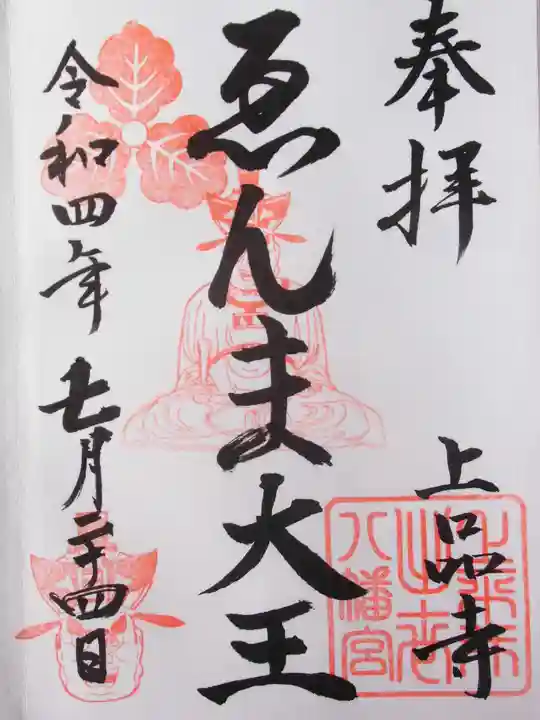 奉拝
上品寺
八幡宮
ゑんま大王
令和四年七月二十四日